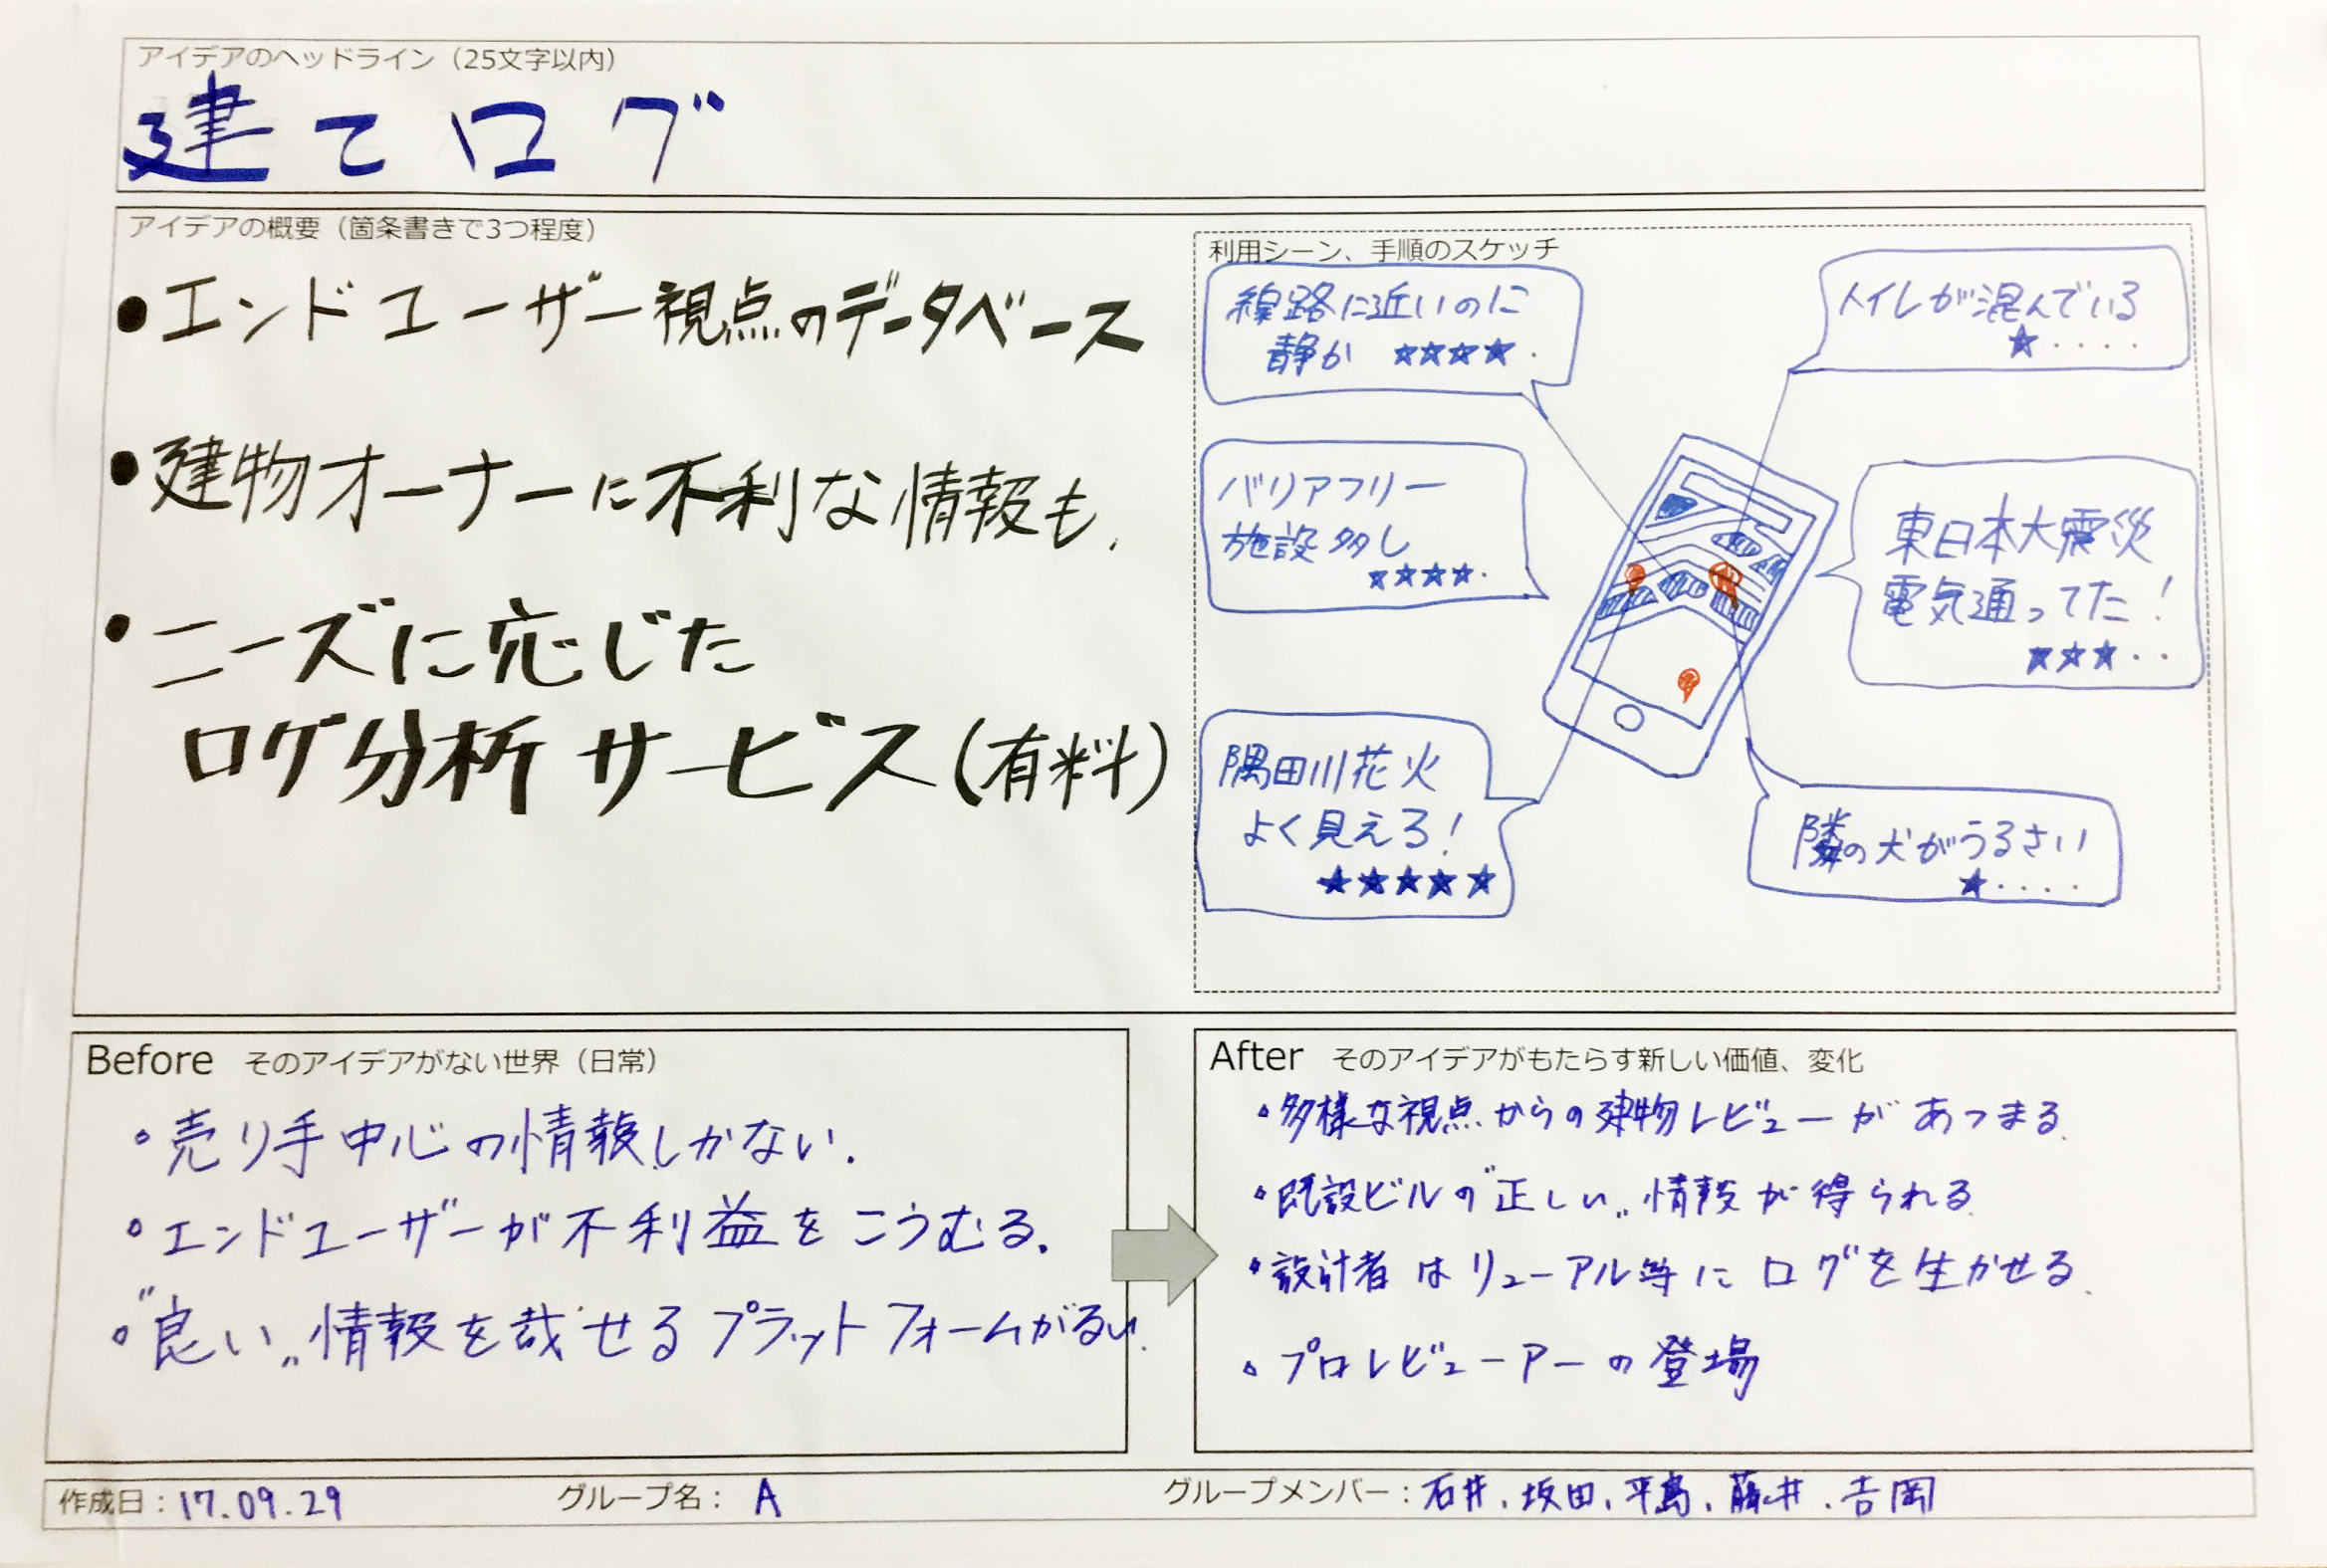 アイデアのヘッドライン（25文字以内）
建てログ
アイデアの概要（箇条書きで3つ程度）
●エンドユーザー視点のデータベース
●建物オーナーに不利な情報も.
●ニーズに応じた
ログ分析サービス(有料)
利用シーン、手順のスケッチ
線路に近いのに
静か ★★★★・
トイレが混んでいる
★・・・・
バリアフリー
施設多し
★★★★・
東日本大震災
電気通ってた！
★★★・・
隅田川花火
よく見えろ！
★★★★★
隣の犬がうるさい
★・・・・
Before そのアイデアがない世界（日常）
・売り手中心の情報しかない.
・エンドユーザーが不利益をこうむる.
・"良い"情報を哉せるプラットフォームがない.
After そのアイデアがもたらす新しい価値、変化
・多様な視点からの建物レビューがあつまる.
・既設ビルの"正しい"情報が得られる.
・設計者はリューアル等にログを生かせる.
・プロレビューアーの登場
作成日：17.09.29
グループ名： A
グループメンバー：石井、坂田、平島、藤井、吉岡